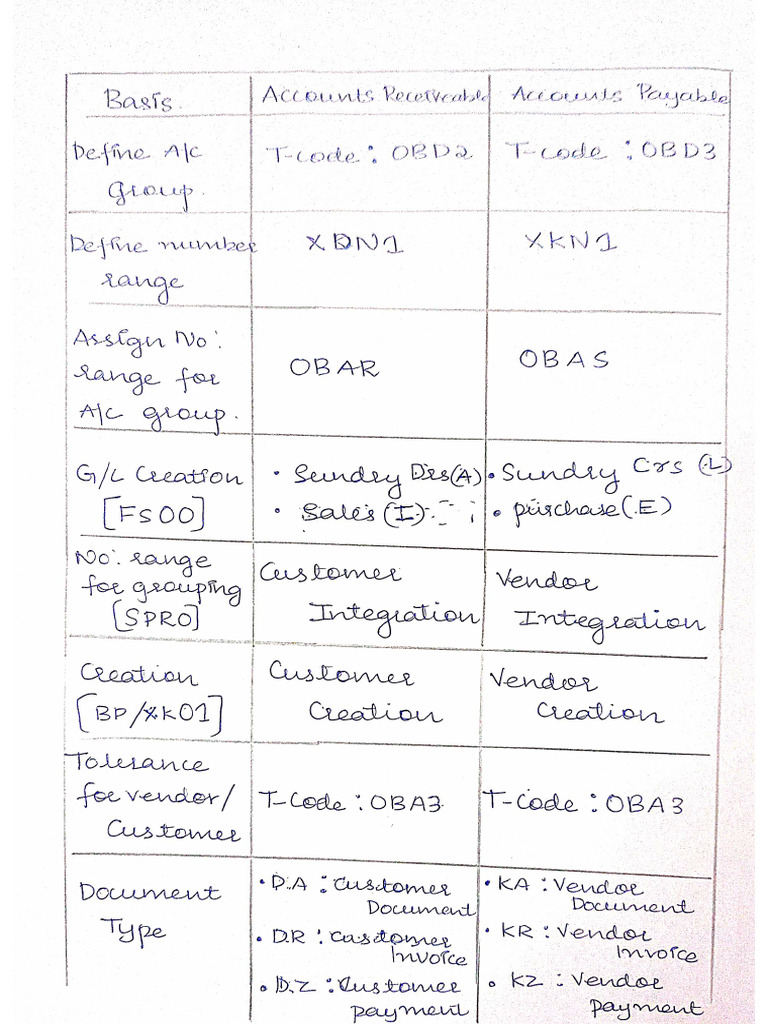 Basis. Accounts Receiveable Accounts Payable
Define A/c T-code : OBD2 T-code : OBD3
group.
Define number XDN1 XKN1
range
Assign No:
range for OBAR OBAS
A/c group.
G/L Creation • Sundry Drs(A) • Sundry Crs (L)
[FS00] • Sales (I) • purchase (E)
No: range
for grouping Customer Vendor
[SPRO] Integration Integration
Creation Customer Vendor
[BP/XK01] Creation Creation
Tolerance
for vendor/ T-Code : OBA3 T-Code : OBA3
Customer
Document • D.A : Customer • KA : Vendor
Document Document
Type • D.R : Customer • KR : Vendor
Invoice Invoice
• D.Z : Customer • KZ : Vendor
payment payment